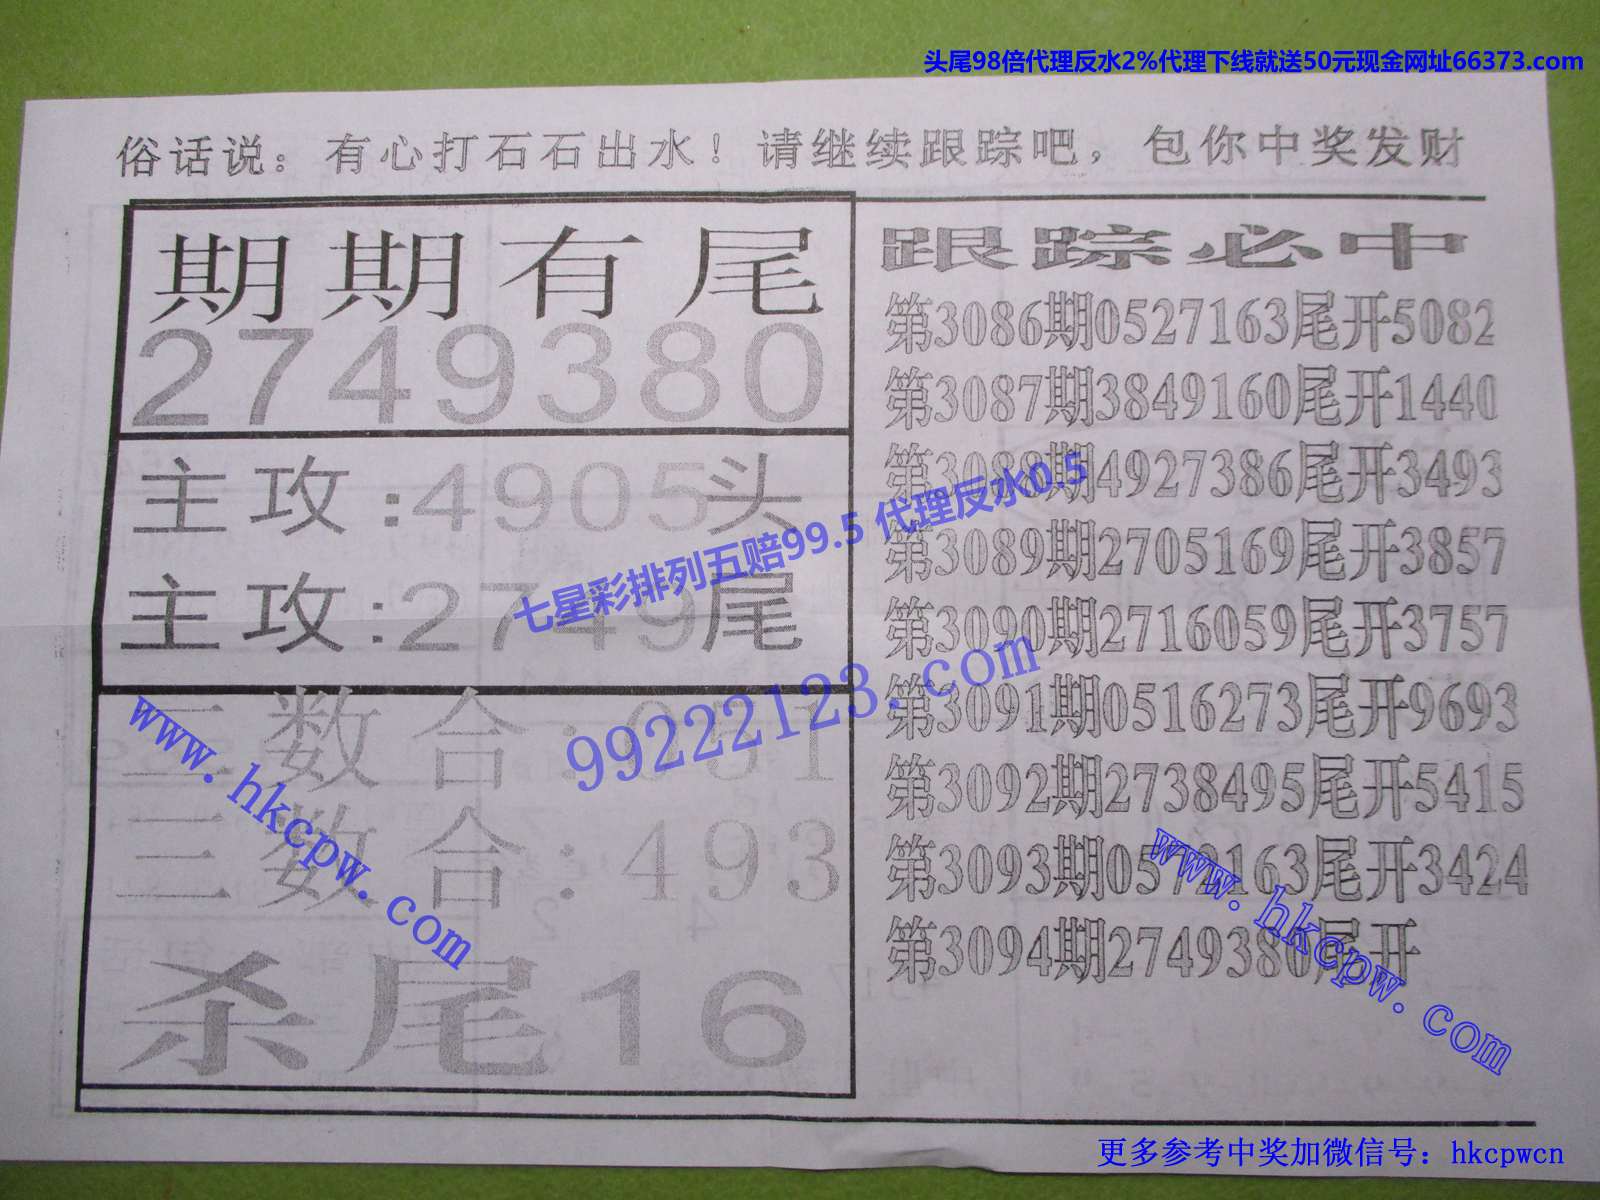 头尾98倍代理反水2%代理下线就送50元现金网址66373.com
俗话说：有心打石石出水！请继续跟踪吧，包你中奖发财
期期有尾
2749380
主攻:4905头
主攻:2749尾
三数合:051
三数合:493
杀尾16
跟踪必中
第3086期0527163尾开5082
第3087期3849160尾开1440
第3088期4927386尾开3493
第3089期2705169尾开3857
第3090期2716059尾开3757
第3091期0516273尾开9693
第3092期2738495尾开5415
第3093期0572163尾开3424
第3094期2749380尾开
七星彩排列五赔99.5 代理反水0.5
99222123.com
www.hkcpw.com
www.hkcpw.com
更多参考中奖加微信号：hkcpwcn